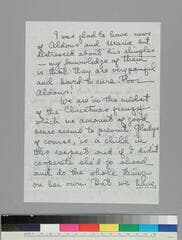 I was glad to have news
of Aldous and Maria but
distressed about his shingles
— my knowledge of them
is that they are very painful
and hard to cure. Poor
Aldous!
We are in the midst
of the Christmas frenzy
which no amount of good
sense seems to prevent. Gladys
of course, is a child in
this respect and if I didn't
cooperate she'd go ahead
and do the whole thing
on her own. But we have,